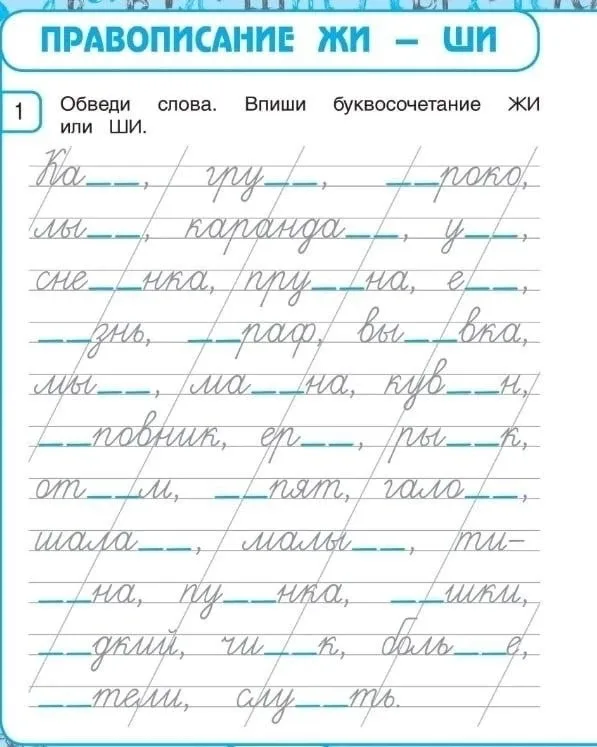 ПРАВОПИСАНИЕ ЖИ – ШИ
1
Обведи слова. Впиши буквосочетание ЖИ
или ШИ.
Ка__, гру__, __роко,
лы__, каранда__, у__,
сне__нка, пру__на, е__,
__знь, __раф, вы__вка,
мы__, ма__на, кув__н,
__повник, ер__, ры__к,
от__м, __пят, гало__,
шала__, малы__, ти-
__на, пу__нка, __шки,
__дкий, чи__к, боль__е,
__тели, слу__ть.